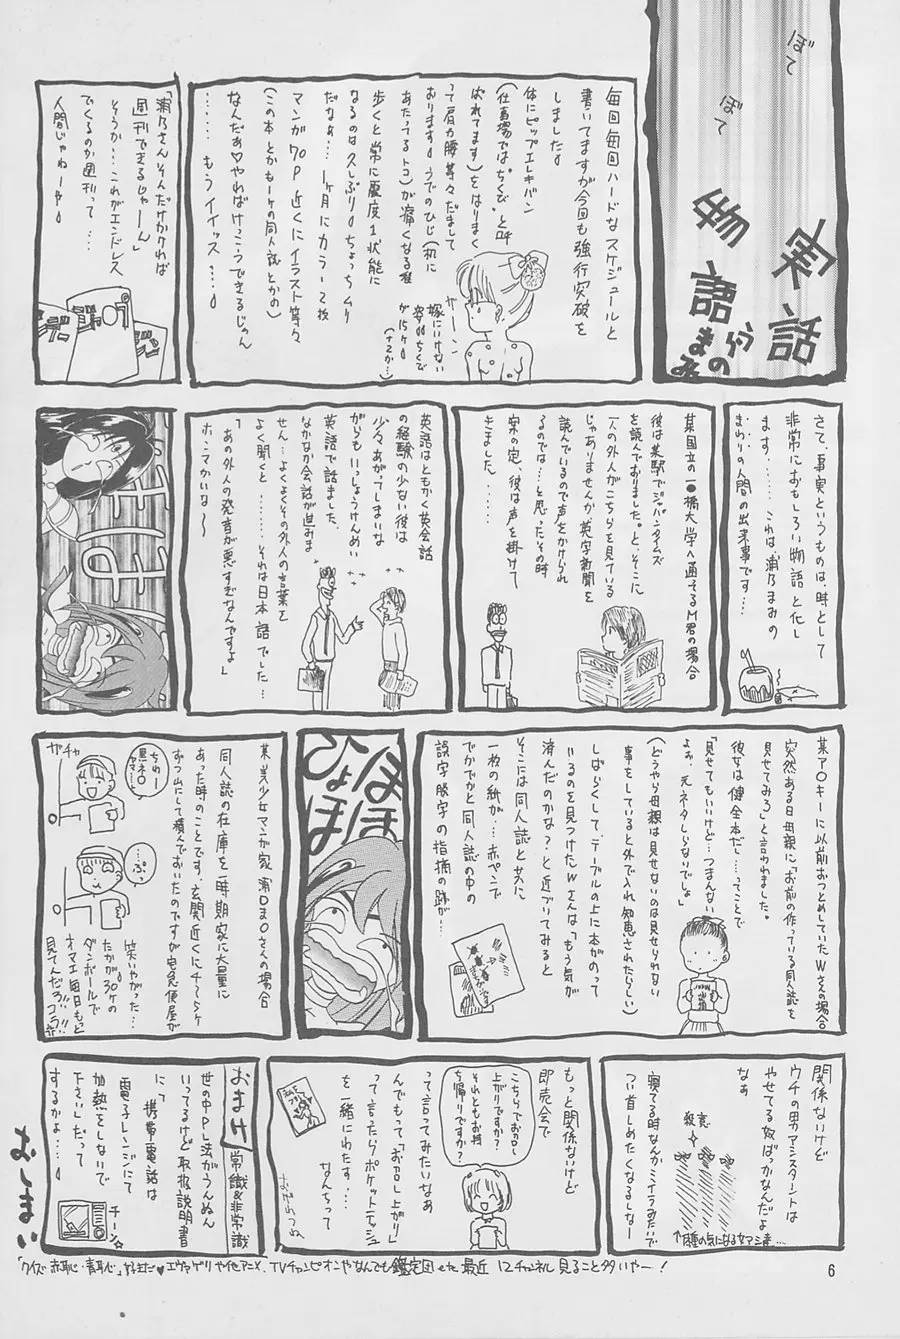 ぼて
ぼて
実話
物語
うらの
まみ
毎回毎回ハードなスケジュールと
書いてますが今回も強行突破を
しました。
体にピップエレキバン
(仕事場では"ちくび"と呼
ばれてます)をはりまく
って肩力腰等々だまして
おります。うでのひじ(机に
あたってるトコ)が痛くなる程
歩くと常に震度1状態に
なるのは久しぶり。ちょっちムリ
だなぁ…1ヶ月にカラー2枚
マンガ70P近くにイラスト等々
(この本とかもーけの同人誌とかの)
なんだぁ♡やればけっこうできるじゃん
………もうイイッス…。
ザーン
嫁にいけない
姿。。ちくび
が15ヶ。
「浦乃さんそんだけかければ
週刊できるじゃーん」
そうか…これがエンドレス
でくるのか週刊って…
人間じゃねーや。
さて、事実というものは、時として
非常におもしろい物語と化し
ます………これは浦乃まみの
まわりの人間の出来事です…
某国立の一●橋大学へ通ってるM君の場合
彼は某駅でジャパンタイムズ
を読んでおりました。と、そこに
一人の外人がこちらを見ている
じゃありませんか英字新聞を
読んでいるので声をかけられ
るのでは…と思ったその時
案の定、彼は声を掛けて
きました………
英語はともかく英会話
の経験の少ない彼は
少々あがってしまいな
がらもいっしょうけんめい
英語で話ました。
なかなか会話が進みま
せん…よくよくその外人の言葉を
よく聞くと………それは日本語でした…
「あの外人の発音が悪すぎなんですよ」
ホンマかいな〜
某アOキーに以前おつとめしていたWさんの場合
突然ある日母親に「お前の作っている同人誌を
見せてみろ」と言われました。
彼女は健全本だし…ってことで
「見せてもいいけど…つまんない
よぉ、元ネタしらないでしょ」
(どうやら母親は見せないのは見せられない
事をしていると外で入れ知恵されたらしい)
しばらくして、テーブルの上に本がのって
いるのを見つけたWさんは「もう気が
済んだのかな?」と近づいてみると
そこには同人誌と共に
一枚の紙が…赤ペンで
でかでかと同人誌の中の
誤字脱字の指摘の跡が…
ほほ
ひょほ
某美少女マンガ家浦Oま○さんの場合
同人誌の在庫を一時期家に大量に
あった時のことです。玄関近くに4〜5ヶ
ずつ山にして積んでおいたのですが宅急便屋が
ガチャ
ちわー
黒ネO
ヤマOー
…ぷっ
笑いやがった…
たかが30ヶの
ダンボールで
オマエ毎日もっと
見てんだろ!!コラ!!
関係ないけど
ウチの男アシスタントは
やせてる奴ばっかなんだよ
なぁ
殺意
寝てる時なんかミイラみたいで
つい首しめたくなるしなー
もっと関係ないけど
即売会で
こちらでおカOし
上がりですか?
それともお持
ち帰りですか?
って言ってみたいなぁ
んでもって「おカOし上がり」
って言ったらポケットティッシュ
を一緒にわたす…
なんちって
おわれつね
おまけ
常識&非常識
世の中PL法がうんぬん
いってるけど取扱説明書
に
携帯電話は
電子レンジにて
加熱をしないで
下さいだって
するかよ…。
チーン☆
おしまい
「クイズ赤恥・青恥」好きだ♥エヴァゲリや他アニメ、TVチャンピオンやなんでも鑑定団etc最近 12チャンネル見ること多いやー!
6